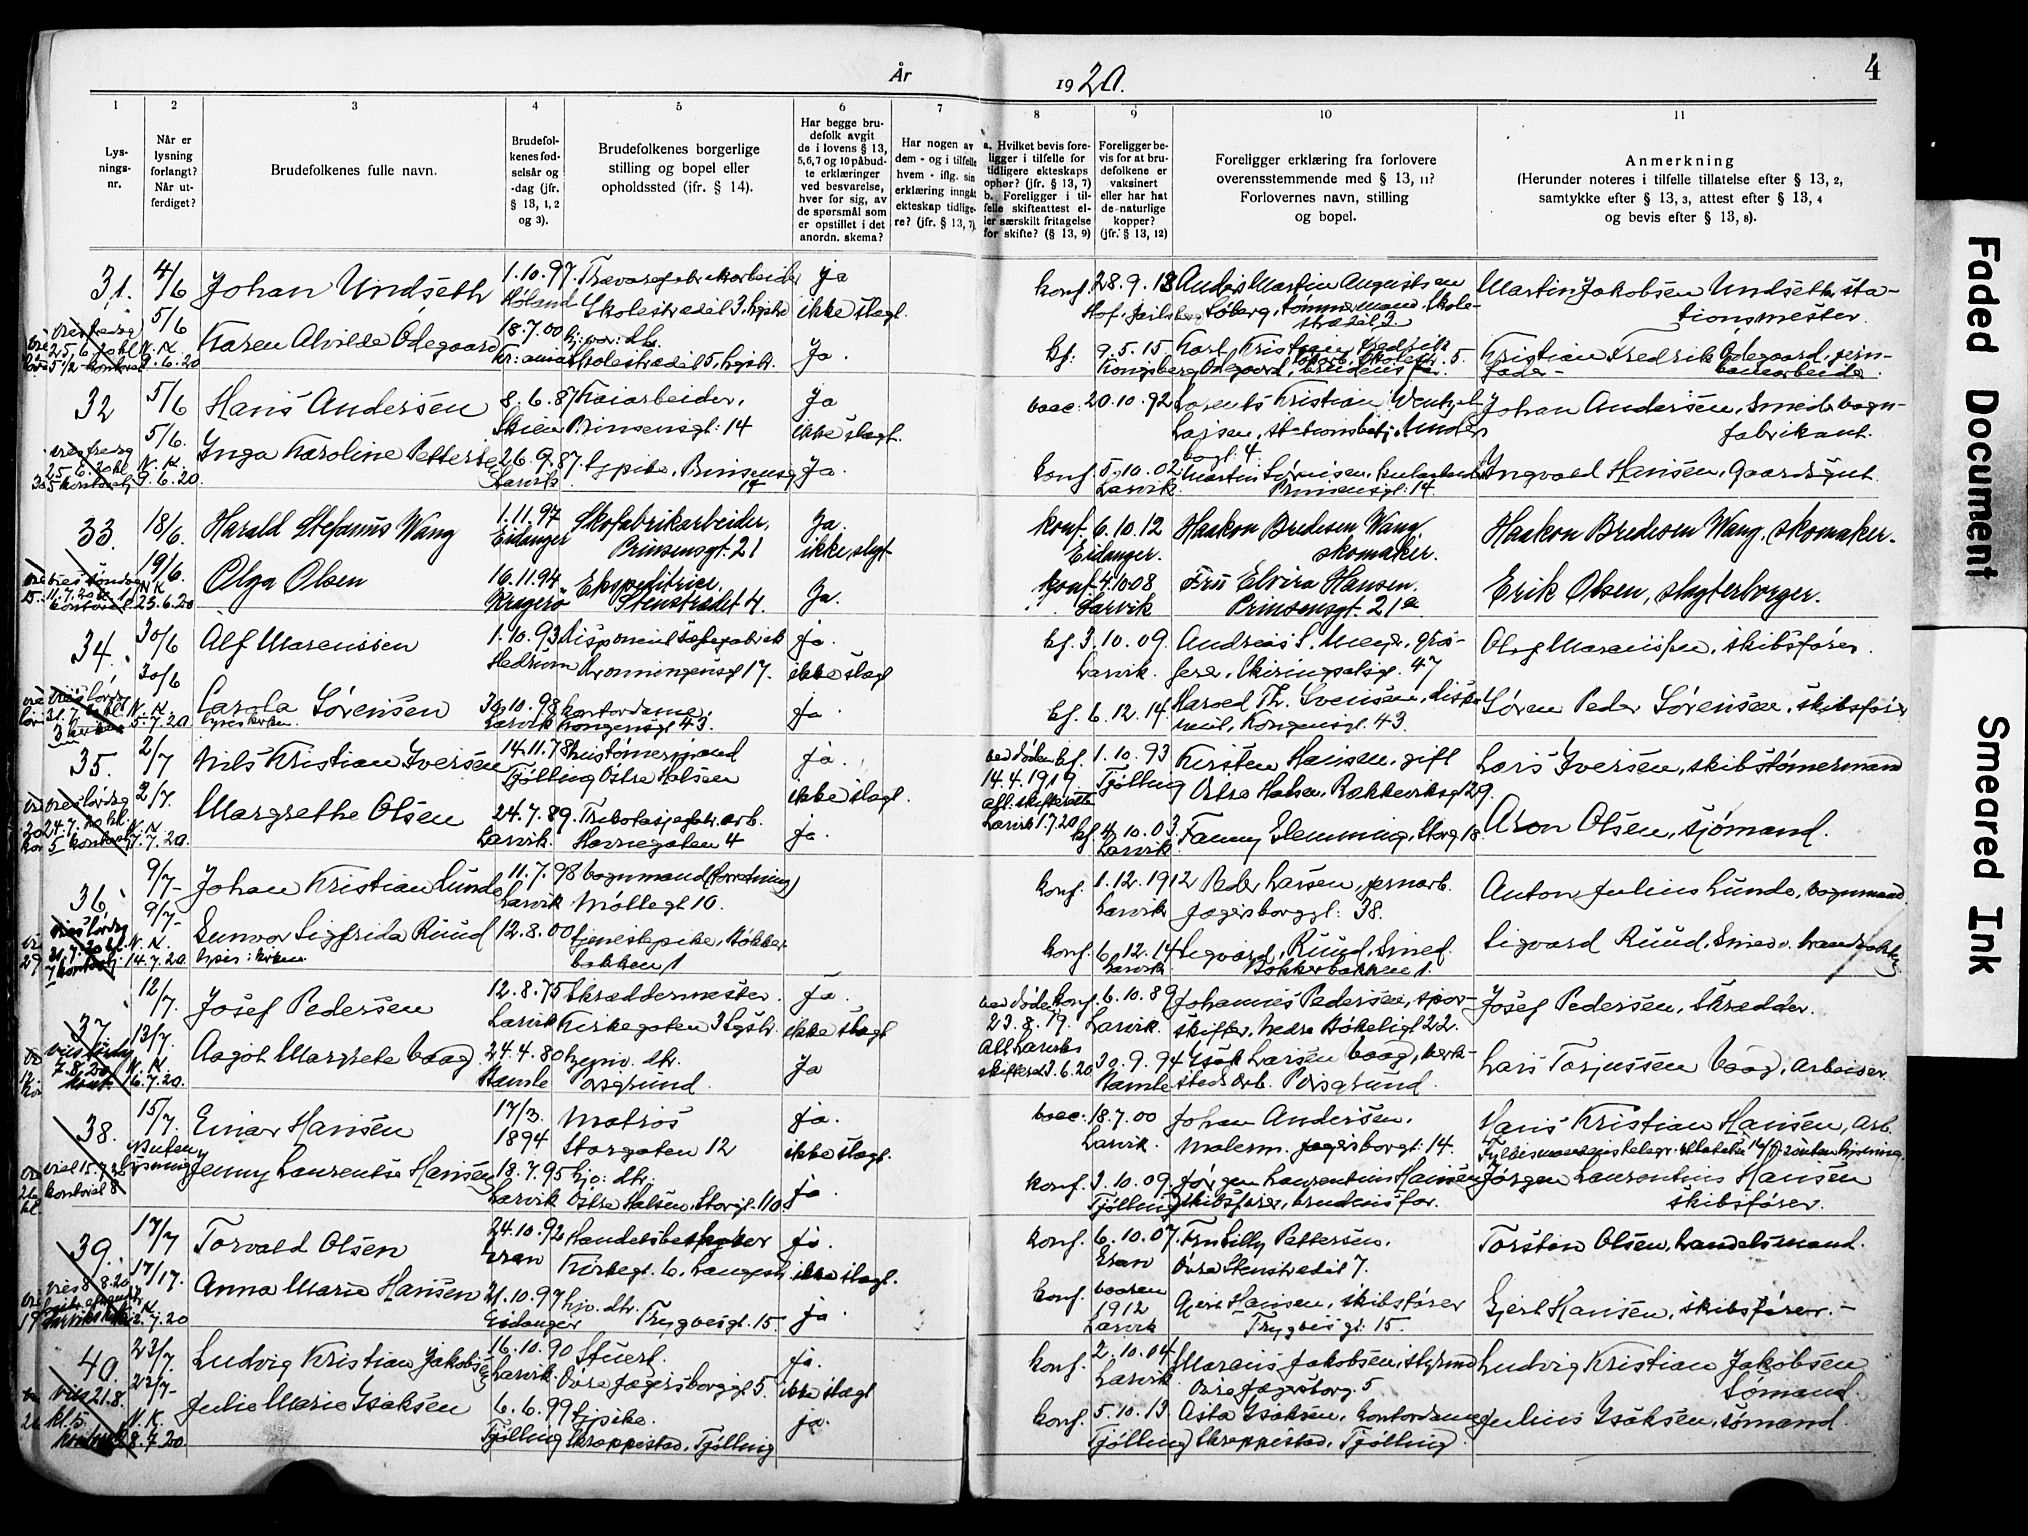 År
1920.
4
1
2
3
4
5
6
7
8
9
10
11
Lys-
nings-
nr.
Når er
lysning
forlangt?
Når ut-
ferdiget?
Brudefolkenes fulle navn.
Brudefol-
kenes fød-
selsår og
-dag (jfr.
§ 13, 1, 2
og 3).
Brudefolkenes borgerlige
stilling og bopel eller
opholdssted (ifr. § 14).
Har begge bru-
defolk avgit
de i lovens § 13,
5,6,7 og 10 påbud-
te erklæringer
ved besvarelse,
hver for sig, av
de spørsmål som
er opstillet i det
anordn. skema?
Har nogen av
dem - og i tilfelle
hvem - iflg. sin
erklæring inngåt
ekteskap tidlige-
re? (jfr. § 13, 7).
a. Hvilket bevis fore-
ligger i tilfelle for
tidligere ekteskaps
ophør? (jfr. § 13, 7)
b. Foreligger i til-
felle skifteattest el-
ler særskilt fritagelse
for skifte? (§ 13, 9)
Foreligger be-
vis for at bru-
defolkene er
vaksinert
eller har hat
de naturlige
kopper?
(jfr. § 13, 12)
Foreligger erklæring fra forlovere
overensstemmende med § 13, 11?
Forlovernes navn, stilling
og bopel.
Anmerkning
(Herunder noteres i tilfelle tillatelse efter § 13, 2,
samtykke efter § 13, 3, attest efter § 13, 4
og bevis efter § 13, 8).
31. 4/6 Johan Undseth 1.10.97. ja konf. 28.9.13 Anders Martin Augustsen Martin Jakobsen Undseth sta-
Høland Skolestrædet 3, ikke slagt. tionsmester.
5/6 Karen Alvilde Ødegaard 18.7.00 Ja. kf. 9.5.15 Karl Kristian Fredrik Kristian Fredrik Ødegaard, jern-
9.6.20 Skolestrædet 5, Kongsberg Ødegaard, brudens far. banearbeider.
32 5/6 Hans Andersen 8.6.87 Kaiarbeider, Ja vacc. 20.10.92 Lorents Kristian Johan Andersen, Smed & vogn-
Skien Prinsensgt. 14 ikke slagt. fabrikant.
5/6. Inga Karoline Pettersen 26.9.87. Tjpike, Prinsensg. Ja. konf. 5.10.02 Martin Sørensen, Ingvald Hansen, Gaardsgut.
N.K. 9.6.20. Larvik 14 Larvik. Prinsensgt. 14.
33. 18/6. Harald Stefanus Wang 1.11.97 Skofabrikarbeider, Ja. konf. 6.10.12 Haakon Bredesen Wang, Haakon Bredesen Wang, skomaker.
Eidanger Prinsensgt. 21 ikke slgt. Eidanger. skomaker.
19/6. Olga Olsen 16.11.94 Ekspeditrice, Ja. konf. 4.10.08 Fru Elvira Hansen. Erik Olsen, slagterborger.
N.K. 25.6.20 Kragerø Stenstrædet 4. Larvik Prinsensgt. 21a
34. 30/6 Alf Marenissen 1.10.93 ja. kf. 3.10.09. Andreas S. Meyer, gros- Olaf Marenissen, skibsfører.
Hedrum Dronningensgt 17. ikke slagt Larvik. serer, Skiringsalsgt. 47
30/6 Carola Sørensen 30.10.98 kontordame, ja. kf. 6.12.14 Harald Th. Svensen, Søren Peder Sørensen, skibsfører
N.K. 5.7.20 Larvik Kongensgt 43. Kongensgt. 43.
35. 2/7 Nils Kristian Iversen 14.11.78 hustømermand ja. ved døden kf. 1.10.93 Kirsten Hansen, gift Lars Iversen, skibstømermand
Tjølling Østre Halsen ikke slagt. 14.4.1919 Tjølling Østre Halsen, Rækkeviksgt 29.
2/7. Margrethe Olsen 24.7.89. Trikotasjefabr. arb. ja. att. skifteretten kf. 4.10.03. Fanny Flemming, Storg. 18. Aron Olsen, sjømand.
N.K. 7.7.20. Larvik. Havnegaten 4 Larvik 1.7.20 Larvik.
36 9/7 Johan Kristian Lunde 11.7.98 vognmand (forretning) konf. 1.12.1912 Peder Larsen, jernarb. Anton Julius Lunde, vognmand.
Larvik Møllegt 10. Larvik Jegersborggt: 38.
9/7- Gunvor Sigfrida Ruud 12.8.00 tjenestepike, Bøkker- konf. 6.12.14 Sigvard Ruud, Smed. Sigvard Ruud, Smed,
N.K. 14.7.20. bakken 1 Larvik Bøkkerbakken 1.
37 12/7. Josef Pedersen 12.8.75 Skræddermester. Ja. ved døden konf. 6.10.89 Johannes Pedersen, spor- Josef Pedersen, Skrædder.
Larvik Kirkegaten 3 ikke slagt 23.8.19. Larvik. skifter, Nedre Bøkeligt 22.
13/7. Aagot Margrete Vaag 24.4.80 hjemv. dtr. Ja Att Larviks 30.9.94 Isak Larsen Vaag, verk- Lars Torjussen Vaag, Arbeider.
N.K. 16.7.20. Bamle Porsgrund. skifterett 3.6.20. Bamle steds arb. Porsgrund.
38. 15/7. Einar Hansen 17/3. Matros ja. vacc. 18.7.00 Johan Andersen, Hans Kristian Hansen, Arb.
1894 Storgaten 12 ikke slagt. Larvik. Malerm. Jegersborgt. 14.
Uten lysning Jenny Laurentse Hansen 18.7.95 hjv: dtr. ja. konf. 3.10.09. Jørgen Laurentius Hansen Jørgen Laurentius Hansen
Larvik Østre Halsen, Storgt. 110. Tjølling skibsfører, brudens far. skibsfører.
39. 17/7 Torvald Olsen 24.10.92 Handelsbestyrer ja. konf. 6.10.07. Fru Lilly Pettersen. Torsten Olsen, handelsmand.
Gran Kirkegt. 6. Langes. ikke slagt. Gran Øvre Stenstrædet 7.
17/7. Anna Marie Hansen 21.10.97 hjv. dtr. ja konf. vaaren 1912 Gert Hansen, skibsfører Gert Hansen, skibsfører. -
Eidanger Trygvesgt. 15. Larvik Trygvesgt. 15.
40. 23/7. Ludvig Kristian Jakobsen 16.10.90 Stuert. Ja. konf. 2.10.04 Marius Jakobsen, styrmd Ludvig Kristian Jakobsen
Larvik. Øvre Jegersborggt 5. ikke slagt Larvik. Øvre Jegersborg. 5 Sømand.
23/7- Julie Marie Isaksen 6.6.99 tjpike. ja. konf. 5.10.13 Asta Isaksen, kontordame Julius Isaksen, sømand.
N.K. 28.7.20. Tjølling Skreppestad, Tjølling Tjølling Skreppestad, Tjølling.
Faded Document
Smeared Ink